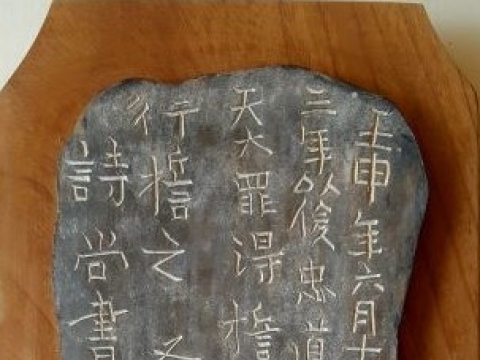 壬申年六月十
三年以後忠道
天大罪得誓
行誓之
詩尚書